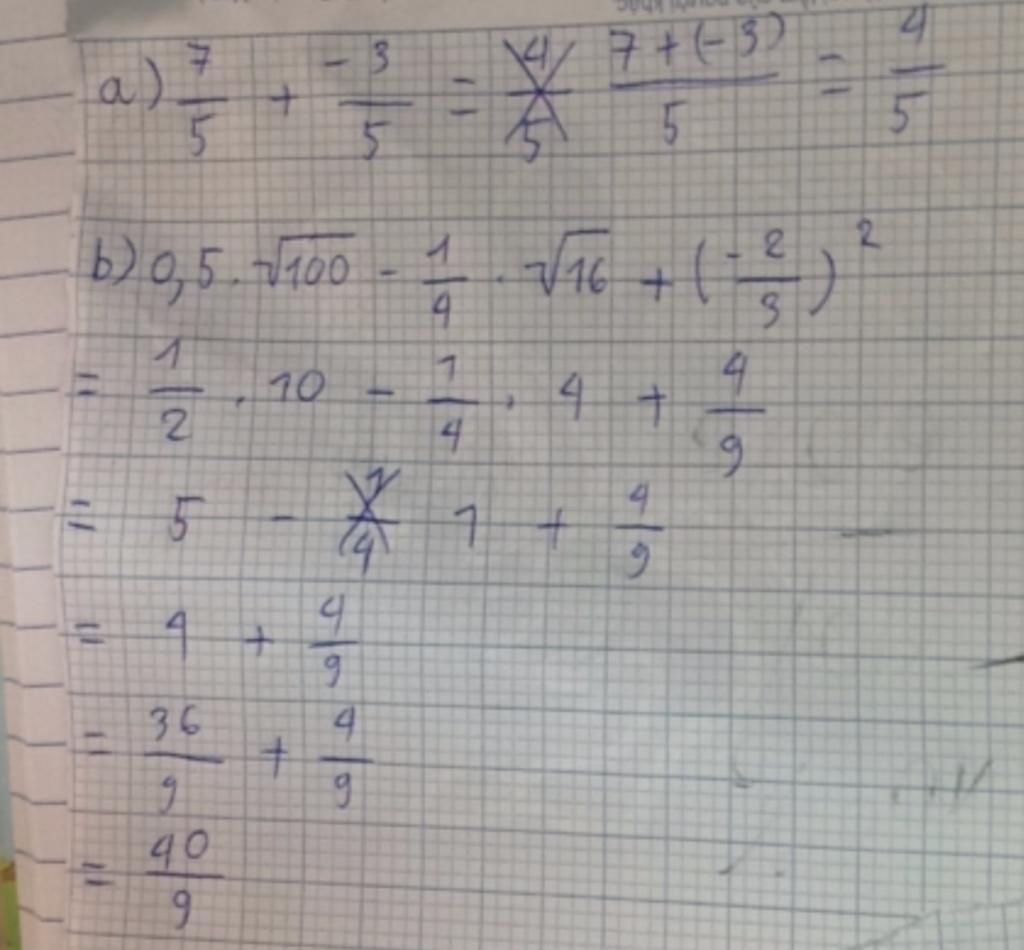 a) 7/5 + -3/5 = 7+(-3)/5 = 4/5
b) 0,5 . √100 - 1/4 . √16 + (-2/3)²
= 1/2 . 10 - 1/4 . 4 + 4/9
= 5 - 1 + 4/9
= 4 + 4/9
= 36/9 + 4/9
= 40/9